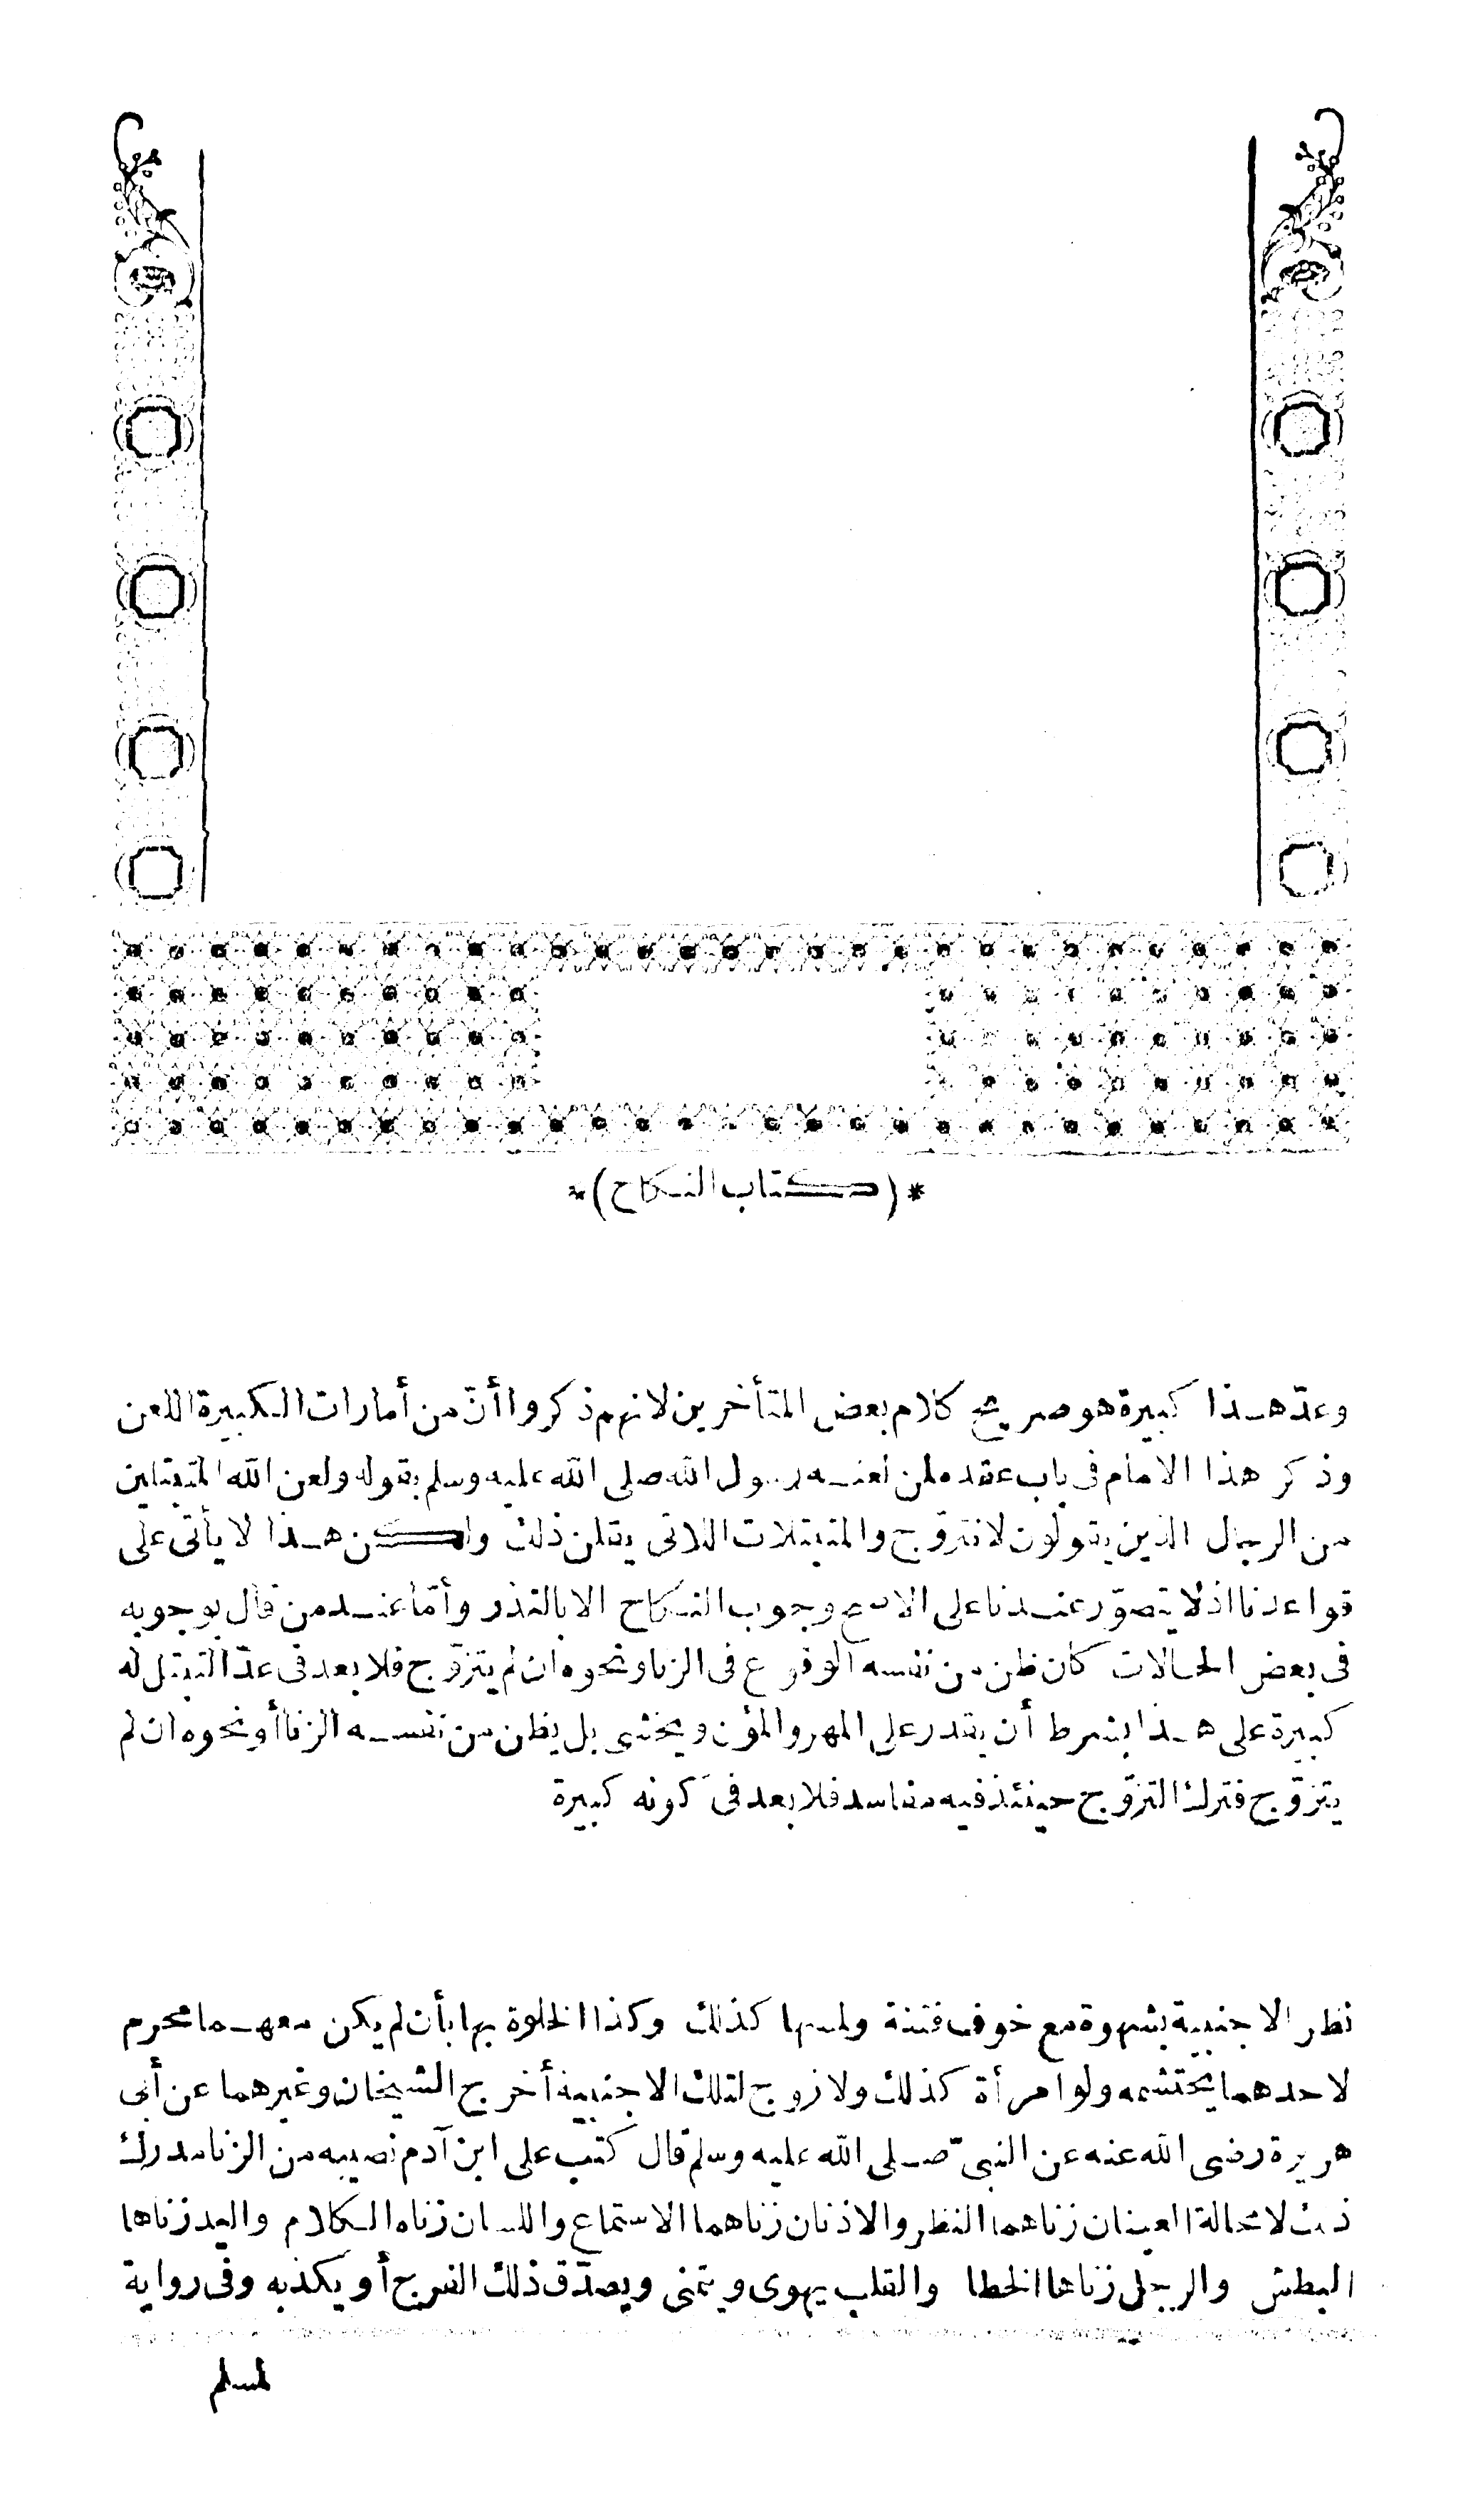 *(كتاب النكاح)*
وعدّ هذا كبيرة هو صريح كلام بعض المتأخرين لانهم ذكروا أنّ من أمارات الكبيرة اللعن
وذكر هذا الامام فى باب عقده لمن لعنه رسول الله صلى الله عليه وسلم بقوله ولعن الله المتبتلين
من الرجال الذين يقولون لا نتزوّج والمتبتلات اللاتى يقلن ذلك ولكن هذا لا يأتى على
قواعدنا اذ لا يتصوّر عندنا على الاصح وجوب النكاح الا بالنذر وأمّا عند من قال بوجوبه
فى بعض الحالات كان ظن من نفسه الوقوع فى الزنا ونحوه ان لم يتزوّج فلا بعد فى عدّ التبتل له
كبيرة على هذا بشرط أن يقدر على المهر والمؤن ويخشى بل يظن من نفسه الزنا أو نحوه ان لم
يتزوّج فترك التزوّج حينئذ فيه مفاسد فلا بعد فى كونه كبيرة
نظر الاجنبية بشهوة مع خوف فتنة ولمسها كذلك وكذا الخلوة بها بأن لم يكن معهما محرم
لاحدهما يحتشمه ولو امرأة كذلك ولا زوج لتلك الاجنبية أخرج الشيخان وغيرهما عن أبى
هريرة رضى الله عنه عن النبىّ صلى الله عليه وسلم قال كتب على ابن آدم نصيبه من الزنا مدرك
ذلك لا محالة العينان زناهما النظر والاذنان زناهما الاستماع واللسان زناه الكلام واليد زناها
البطش والرجل زناها الخطا والقلب يهوى ويتمنى ويصدّق ذلك الفرج أو يكذبه وفى رواية
لمسلم